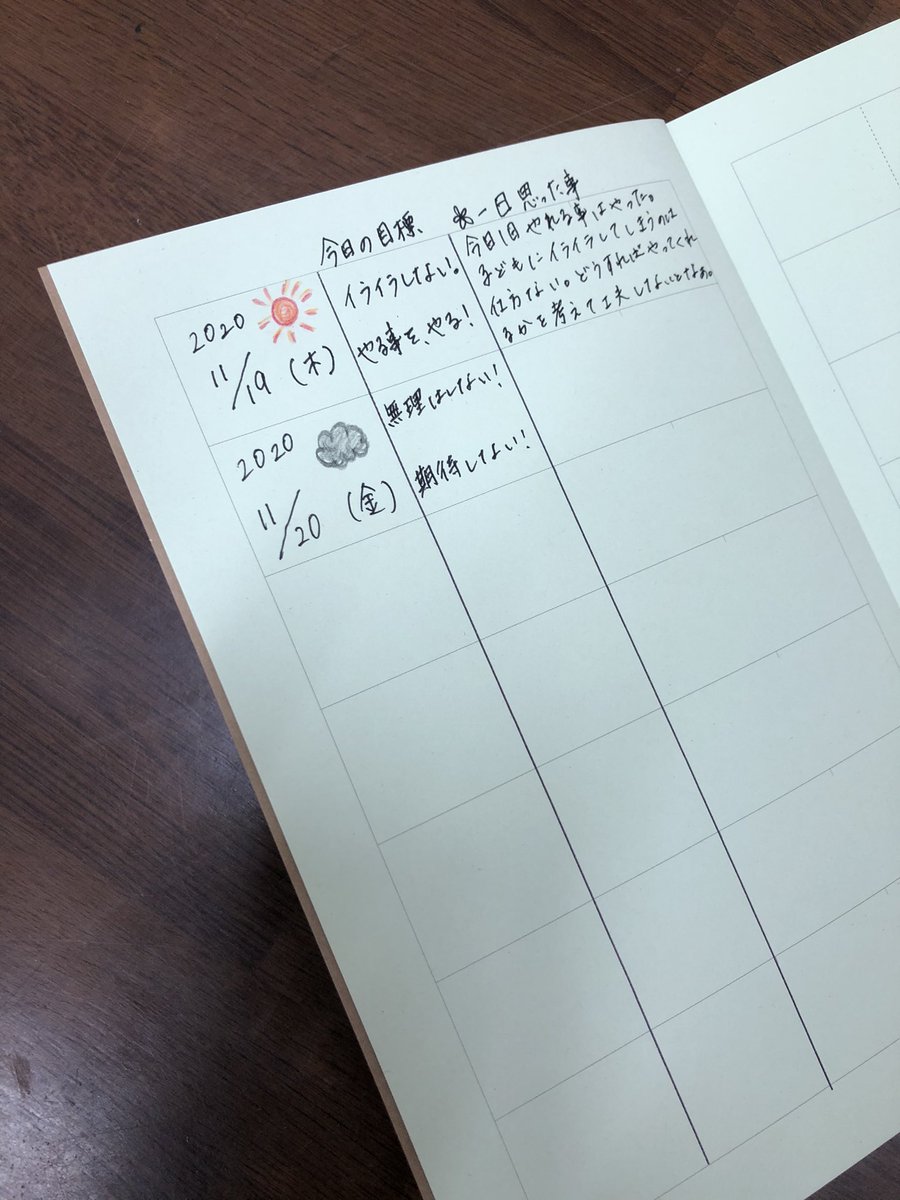 今日の目標
*一日思った事
2020
11/19 (木)
イライラしない。
やる事を、やる!
今日1日やれる事はやった。
子どもにイライラしてしまうのは
仕方ない。どうすればやってくれ
るかを考えて工夫しないとなぁ。
2020
11/20 (金)
無理はしない!
期待しない!!